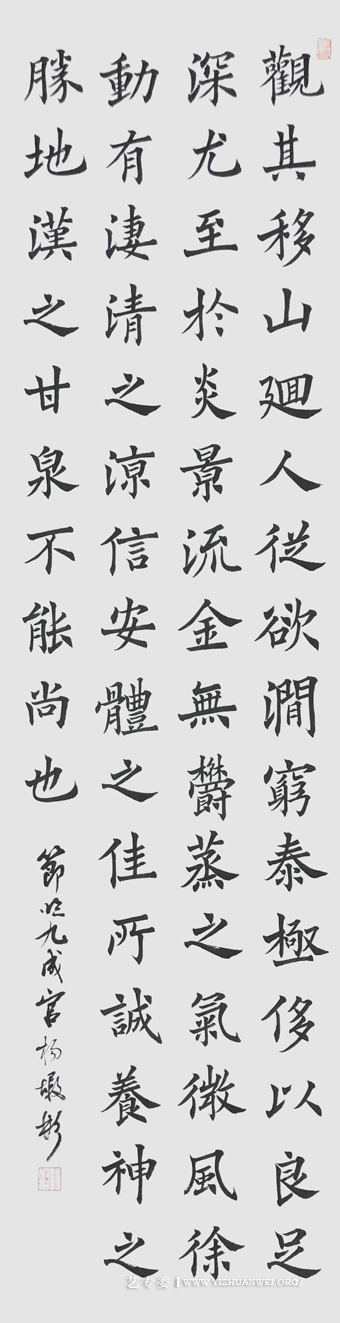 觀其移山廻人従欲澗窮泰極侈以良足
深尤至於炎景流金無鬱蒸之氣微風徐
動有淒清之涼信安體之佳所誠養神之
勝地漢之甘泉不能尚也
節临九成宫杨彬
艺专委 | WWW.YIZHUANWEI.ORG/